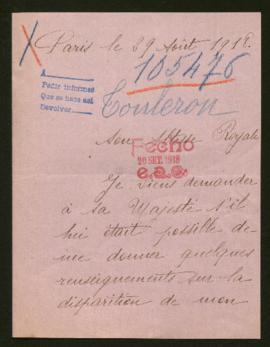 Paris le 29 Août 1918.
105476
A
Pedir informes
Que se hace así
Devolver
Touleron
son Altesse Royale
Fecho
20 SET. 1918
e.a.c.
Je viens demander
à sa Majesté s'il
lui était possible de
me donner quelques
renseignements sur la
disparition de mon